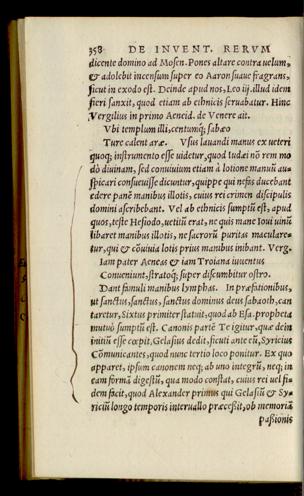 358 DE INVENT. RERVM
dicente domino ad Mosen. Pones altare contra uelum,
& adolebit incensum super eo Aaron suaue fragrans,
sicut in exodo est. Deinde apud nos, Leo iij. illud idem
fieri sanxit, quod etiam ab ethnicis seruabatur. Hinc
Vergilius in primo Aeneid. de Venere ait.
Vbi templum illi, centumq; sabæo
Ture calent aræ. Vsus lauandi manus ex ueteri
quoq; instrumento esse uidetur, quod Iudæi nō rem mo
dò diuinam, sed conuiuium etiam à lotione manuū au-
spicari consueuisse dicuntur, quippe qui nefas ducebant
edere panē manibus illotis, cuius rei crimen discipulis
domini ascribebant. Vel ab ethnicis sumptū est, apud
quos, teste Hesiodo, uetitū erat, ne quis mane Ioui uinū
libaret manibus illotis, ne sacrorū puritas maculare-
tur, qui & cōuiuia lotis prius manibus inibant. Verg.
Iam pater Aeneas & iam Troiana iuuentus
Conueniunt, stratoq; super discumbitur ostro.
Dant famuli manibus lymphas. In præfationibus,
ut sanctus, sanctus, sanctus dominus deus sabaoth, can
taretur, Sixtus primiter statuit, quod ab Esa. propheta
mutuò sumptū est. Canonis partē Te igitur, quæ dein
initiū esse cœpit, Gelasius dedit, sicuti ante eū, Syricius
Cōmunicantes, quod nunc tertio loco ponitur. Ex quo
apparet, ipsum canonem neq; ab uno integrū, neq; in
eam formā digestū, qua modo constat, cuius rei uel fi-
dem facit, quod Alexander primus qui Gelasiū & Sy-
riciū longo temporis interuallo præcessit, ob memoriā
passionis